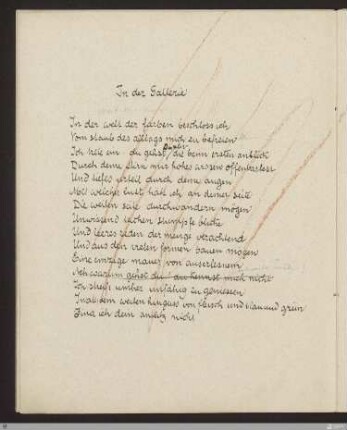 In der Gallerie
In der welt der farben beschloss ich
Vom staub des alltags mich zu befreien
Ich trete ein du gehst dunkle die beim ersten anblick
Durch deine stirn mir hohes wissen offenbartest
Und tiefes urteil durch deine augen
Mit welcher lust hätt ich an deiner seite
Die weiten säle durchwandern mögen
Unwissend lachen stumpfe blicke
Und leeres reden der menge verachtend
Und aus den vielen formen bauen mögen
Eine einzige mauer von auserlesnem
Ach warum gehst du! du kennst mich nicht
Ich streife umher unfähig zu geniessen
In all dem weiten von fleisch und blau und grün
Find ich dein antlitz nicht.